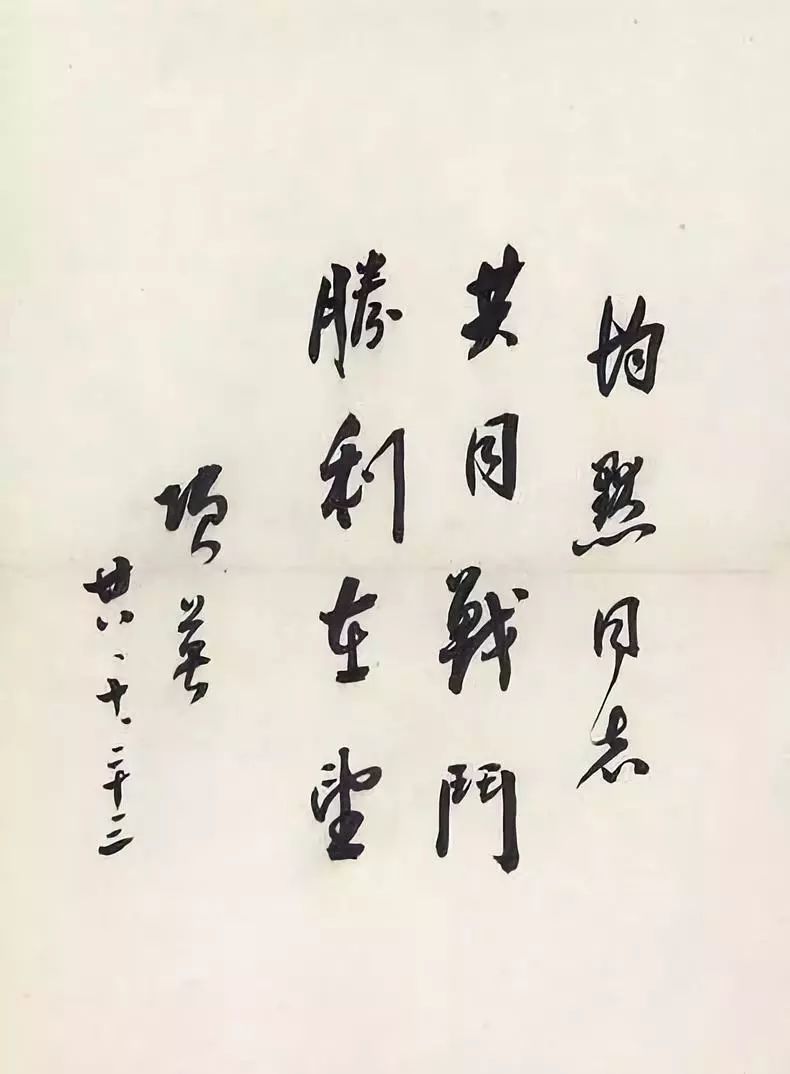 均默同志
共同戰鬥
勝利在望
項英
廿八、十、二十三